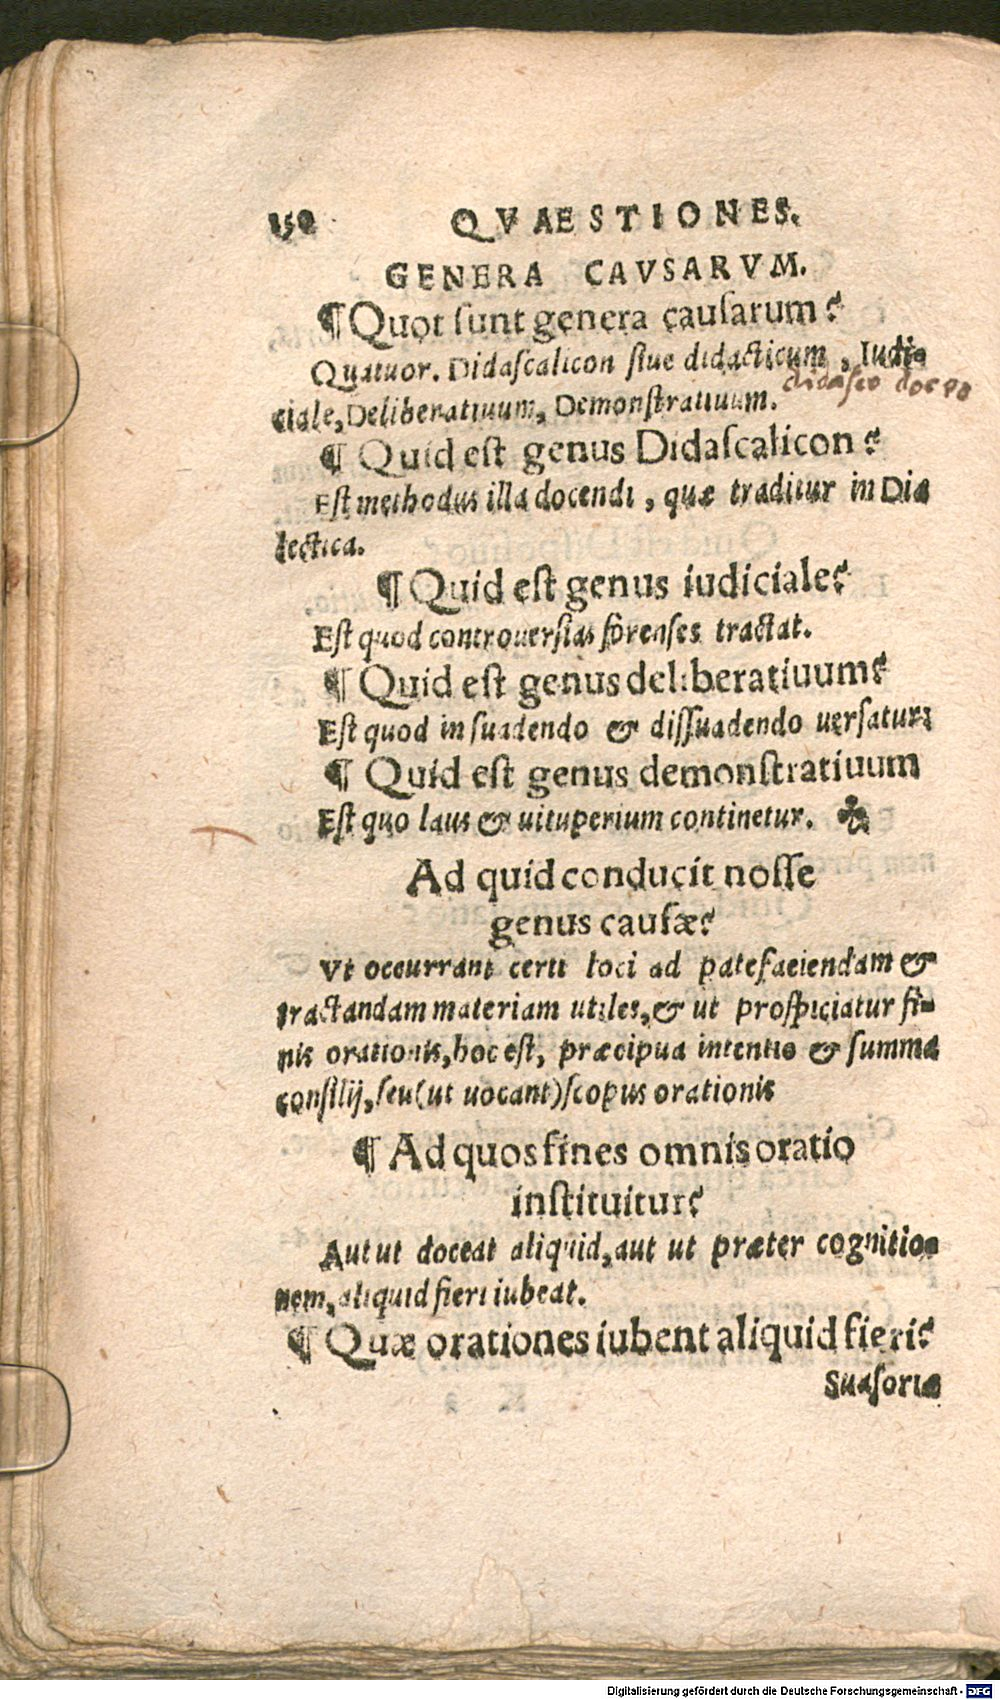 150 QVAESTIONES.
GENERA CAVSARVM.
¶Quot sunt genera causarum?
Quatuor. Didaſcalicon ſiue didacticum, Iudi-
didasco doceo
ciale, Deliberatiuum, Demonſtratiuum.
¶ Quid eſt genus Didaſcalicon?
Eſt methodus illa docendi, quæ traditur in Dia
lectica.
¶Quid eſt genus iudiciale?
Eſt quod controuerſias forenſes tractat.
¶Quid eſt genus deliberatiuum?
Eſt quod in ſuadendo & diſſuadendo uerſatur:
¶ Quid eſt genus demonſtratiuum
Eſt quo laus & uituperium continetur. ☘
Ad quid conducit noſſe
genus cauſæ?
Vt occurrant certi loci ad patefaciendam &
tractandam materiam utiles, & ut proſpiciatur fi-
nis orationis, hoc eſt, præcipua intentio & ſumma
conſilij, ſeu (ut uocant) ſcopus orationis
¶ Ad quos fines omnis oratio
inſtituitur?
Aut ut doceat aliquid, aut ut præter cognitio-
nem, aliquid fieri iubeat.
¶ Quæ orationes iubent aliquid fieri?
Suaſoriæ
Digitalisierung gefördert durch die Deutsche Forschungsgemeinschaft - DFG